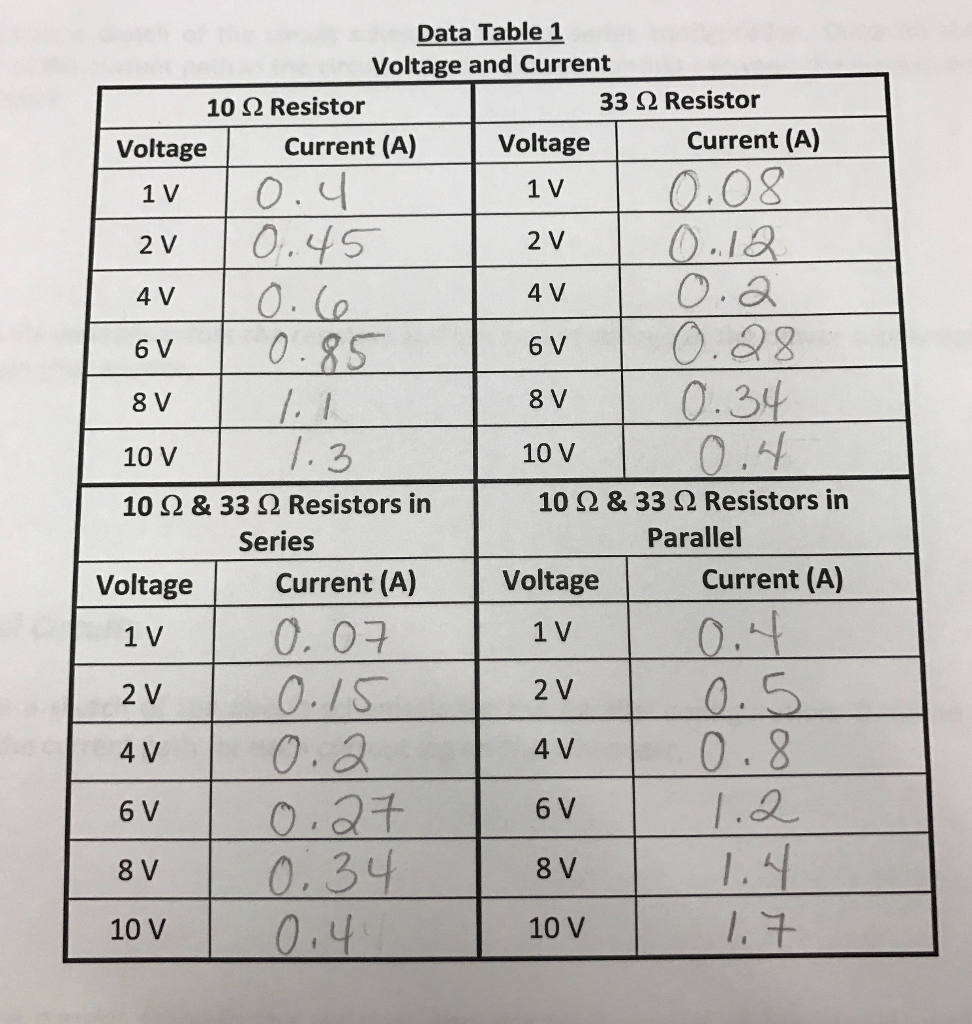 Data Table 1
Voltage and Current
10 Ω Resistor 33 Ω Resistor
Voltage Current (A) Voltage Current (A)
1 V 0.4 1 V 0.08
2 V 0.45 2 V 0.12
4 V 0.6 4 V 0.2
6 V 0.85 6 V 0.28
8 V 1.1 8 V 0.34
10 V 1.3 10 V 0.4
10 Ω & 33 Ω Resistors in Series 10 Ω & 33 Ω Resistors in Parallel
Voltage Current (A) Voltage Current (A)
1 V 0.07 1 V 0.4
2 V 0.15 2 V 0.5
4 V 0.2 4 V 0.8
6 V 0.27 6 V 1.2
8 V 0.34 8 V 1.4
10 V 0.4 10 V 1.7